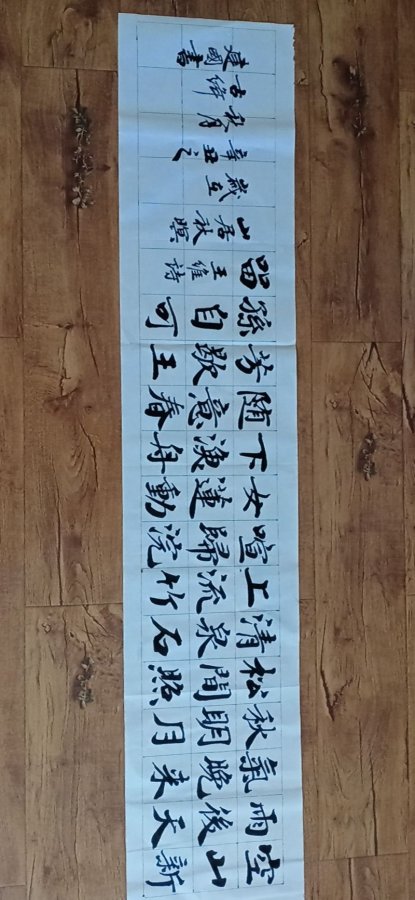 空山新
雨後天
氣晚来
秋明月
松間照
清泉石
上流竹
喧歸浣
女蓮動
下漁舟
随意春
芳歇王
孫自可
留
王維詩
山居秋暝
歲在
辛丑之
秋月
古絳
國書